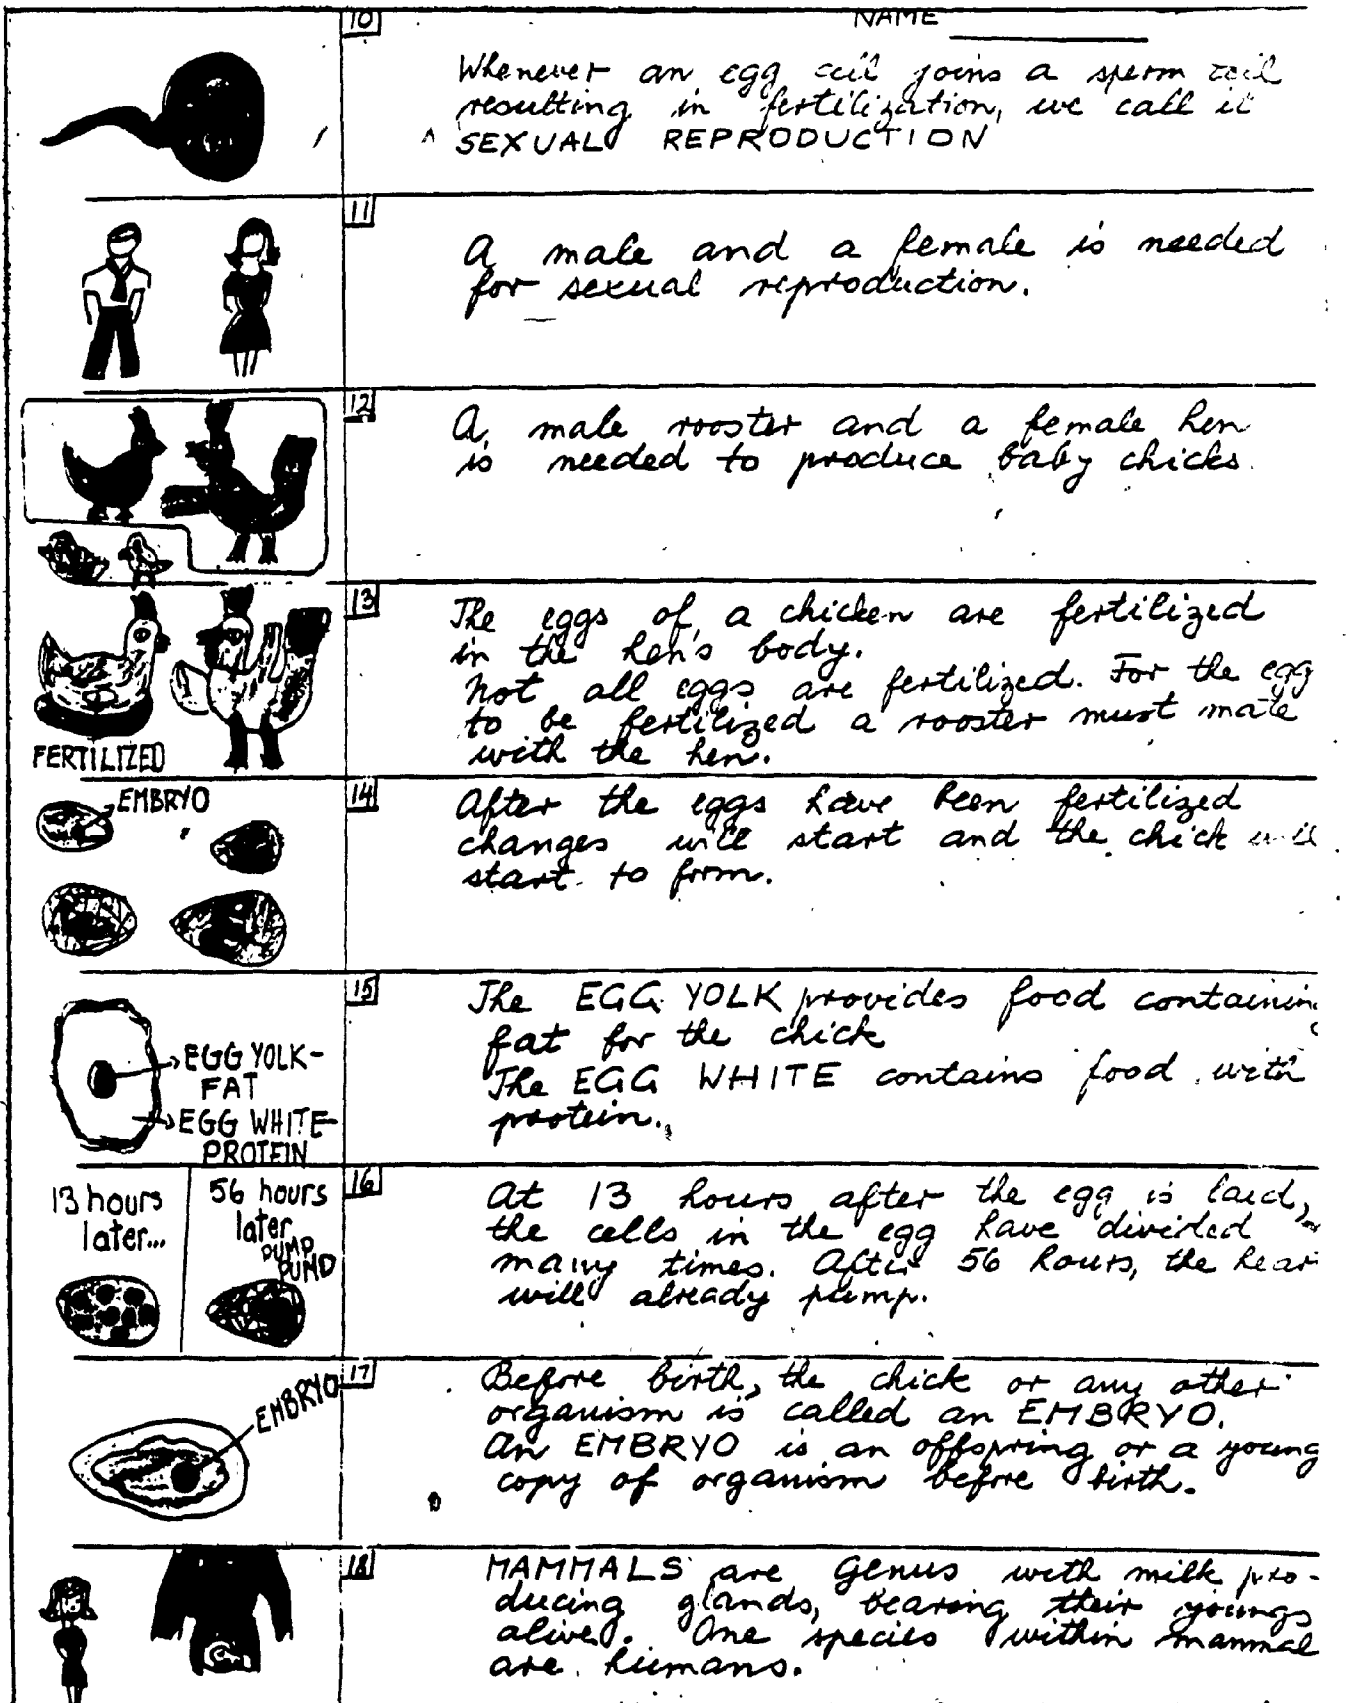 10
NAME
Whenever an egg cell joins a sperm cell
resulting in fertilization, we call it
SEXUAL REPRODUCTION
11
A male and a female is needed
for sexual reproduction.
12
A male rooster and a female hen
is needed to produce baby chicks.
13
The eggs of a chicken are fertilized
in the hen's body.
Not all eggs are fertilized. For the egg
to be fertilized a rooster must mate
with the hen.
FERTILIZED
14
EMBRYO
After the eggs have been fertilized
changes will start and the chick will
start to form.
15
The EGG YOLK provides food containing
fat for the chick
The EGG WHITE contains food with
protein.
EGG YOLK-
FAT
EGG WHITE-
PROTEIN
16
13 hours
later...
56 hours
later
PUMP
PUMP
At 13 hours after the egg is laid,
the cells in the egg have divided
many times. After 56 hours, the hear
will already pump.
17
EMBRYO
Before birth, the chick or any other
organism is called an EMBRYO.
An EMBRYO is an offspring or a young
copy of organism before birth.
18
MAMMALS are Genus with milk pro-
ducing glands, bearing their youngs
alive. One species within mammal
are humans.